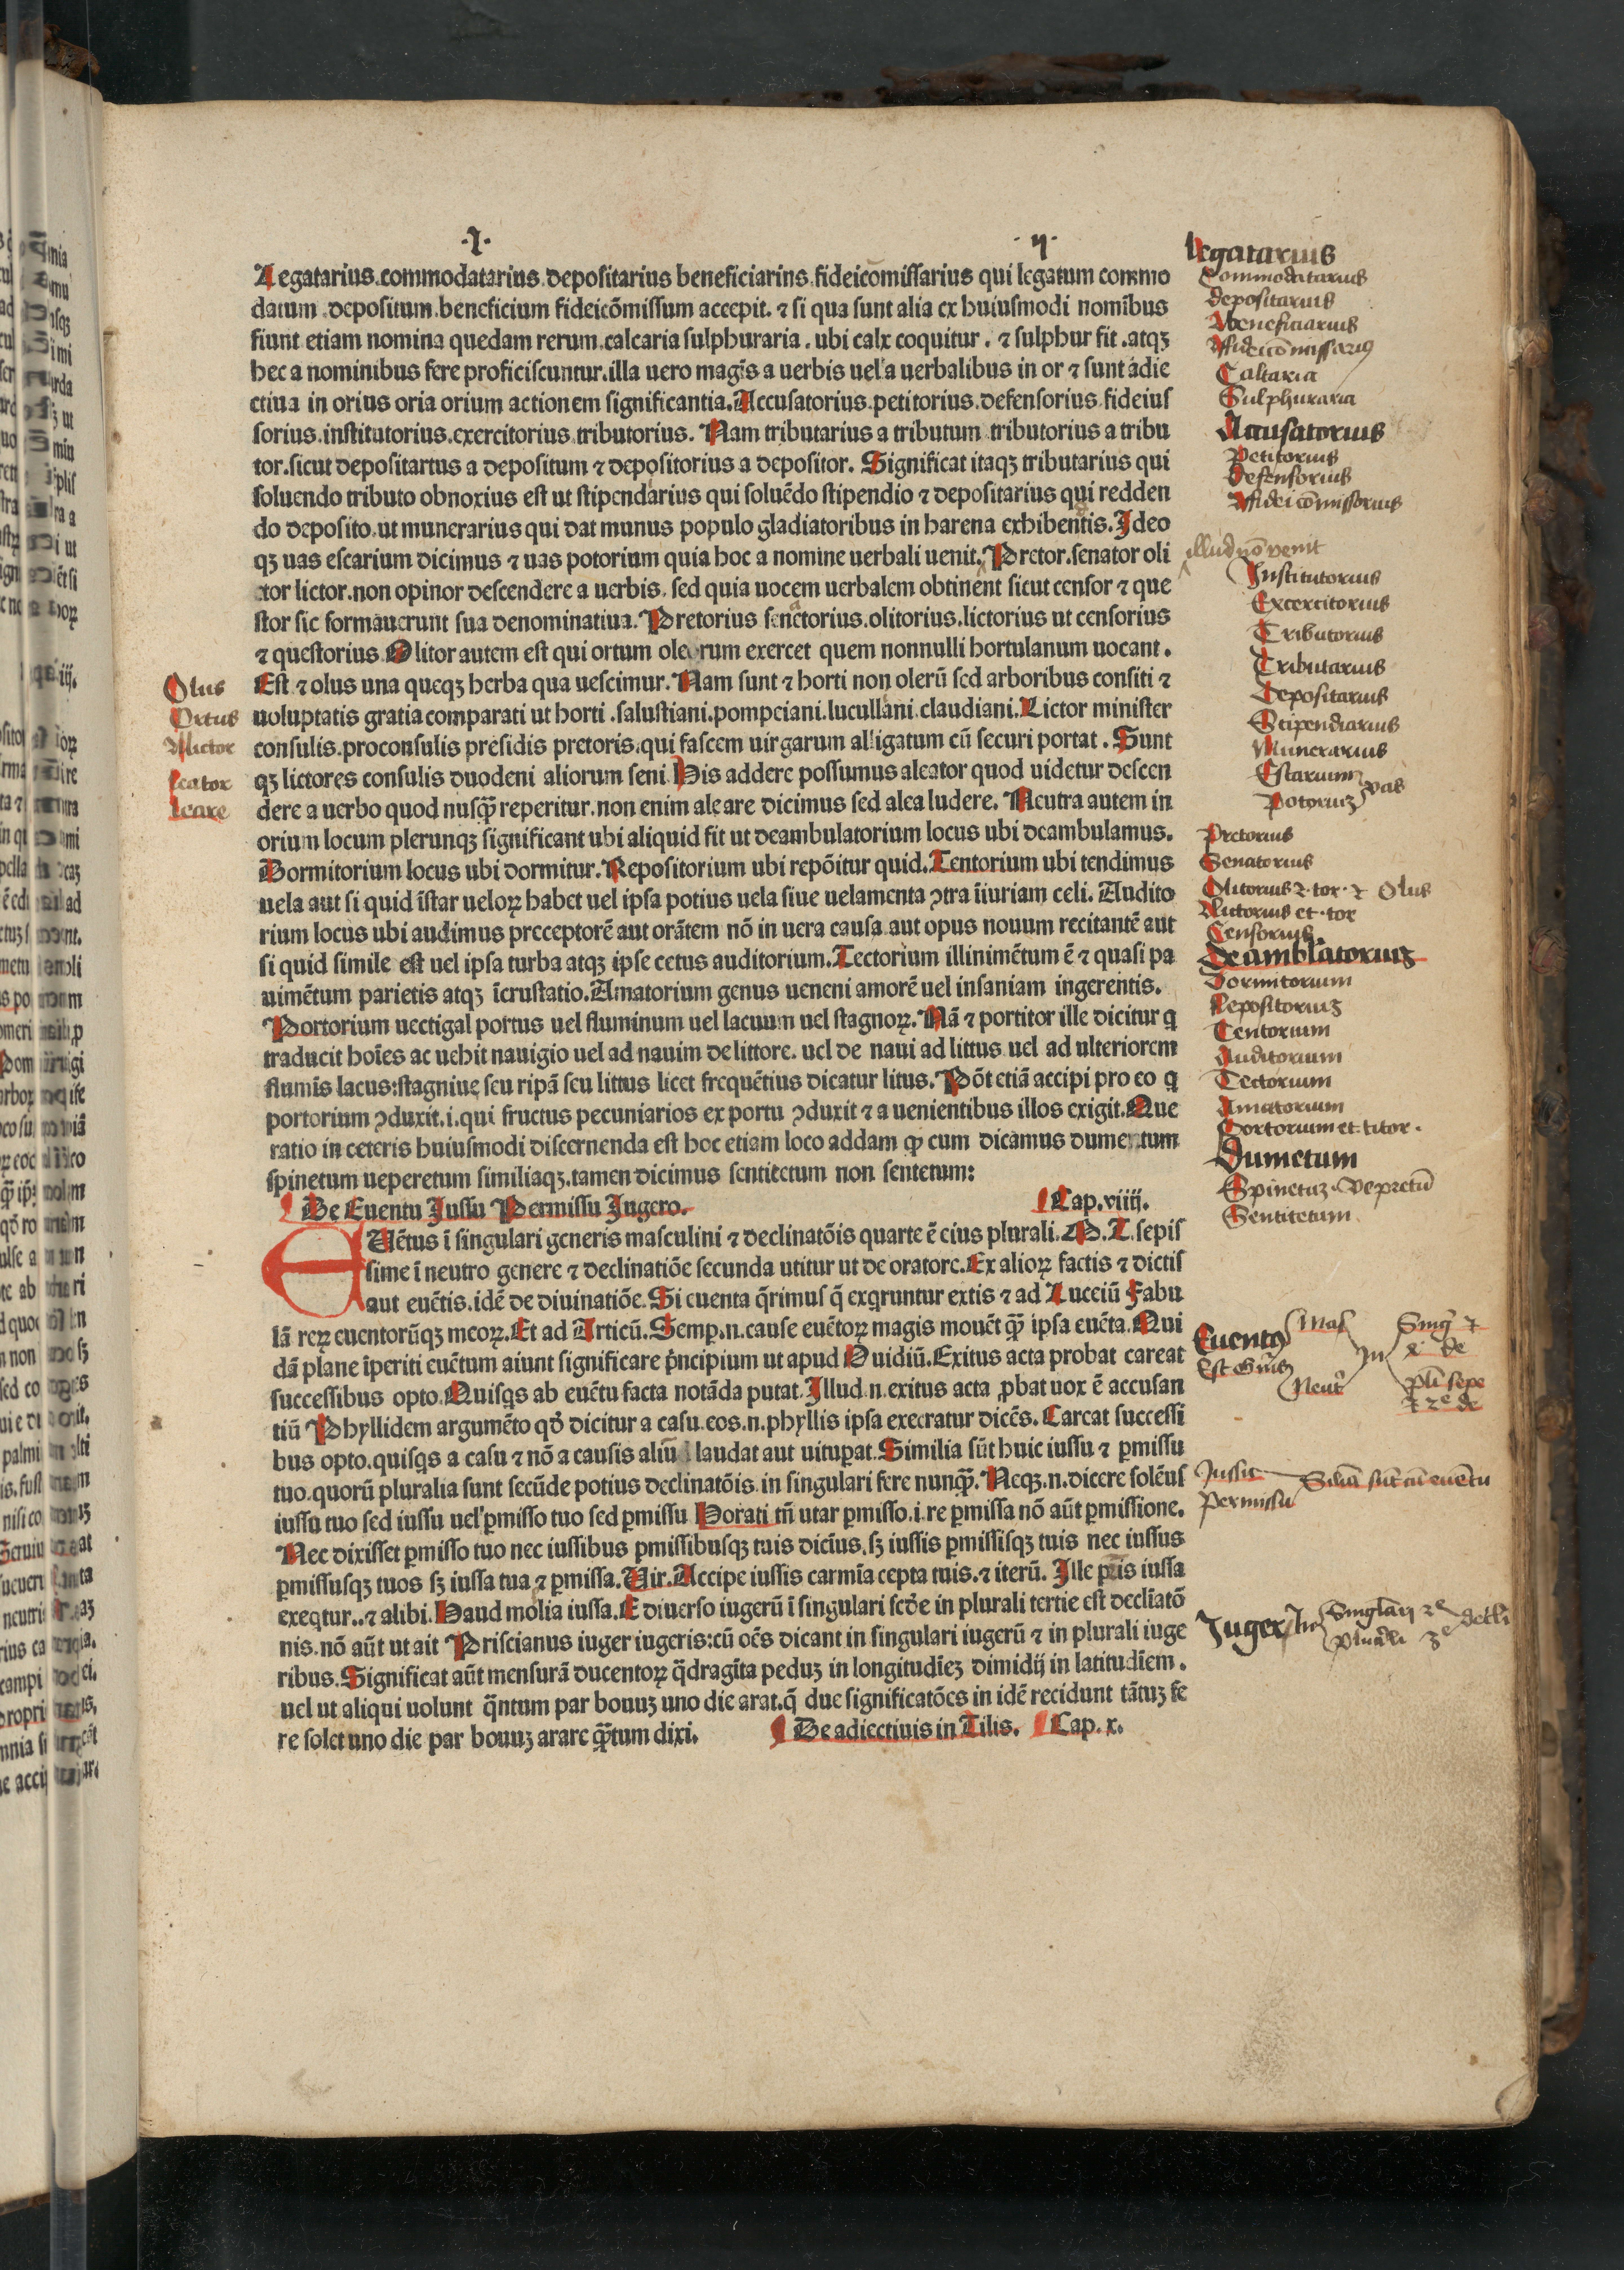 ·I· ·ij·
Legatarius.commodatarius.depositarius beneficiarius.fideicōmissarius qui legatum commo
datum .depositum.beneficium fideicōmissum accepit. ⁊ si qua sunt alia ex huiusmodi nomībus
fiunt etiam nomina quedam rerum.calcaria sulphuraria. ubi calx coquitur. ⁊ sulphur fit .atqꝫ
hec a nominibus fere proficiscuntur.illa uero magis a uerbis uel a uerbalibus in or ⁊ sunt adie
ctiua in orius oria orium actionem significantia.Accusatorius.petitorius.defensorius.fideiuſ
sorius.institutorius.exercitorius.tributorius. Nam tributarius a tributum tributorius a tribu
tor.sicut depositartus a depositum ⁊ depositorius a depositor. Significat itaqꝫ tributarius qui
soluendo tributo obnoxius est ut stipendarius qui soluēdo stipendio ⁊ depositarius qui redden
do deposito.ut munerarius qui dat munus populo gladiatoribus in harena exhibentis.Ideo
qꝫ uas escarium dicimus ⁊ uas potorium quia hoc a nomine uerbali uenit. Pretor.senator oli
tor lictor.non opinor descendere a uerbis. sed quia uocem uerbalem obtinent sicut censor ⁊ que
stor sic formauerunt sua denominatiua. Pretorius senatorius.olitorius.lictorius ut censorius
⁊ questorius Olitor autem est qui ortum olerum exercet quem nonnulli hortulanum uocant.
Est ⁊ olus una queqꝫ herba qua uescimur. Nam sunt ⁊ horti non olerū sed arboribus consiti ⁊
uoluptatis gratia comparati ut horti .salustiani.pompeiani.lucullani.claudiani.Lictor minister
consulis.proconsulis presidis pretoris.qui fascem uirgarum alligatum cū securi portat. Sunt
qꝫ lictores consulis duodeni aliorum seni His addere possumus aleator quod uidetur descen
dere a uerbo quod nusqꝫ̄ reperitur.non enim aleare dicimus sed alea ludere. Neutra autem in
orium locum plerunqꝫ significant ubi aliquid fit ut deambulatorium locus ubi deambulamus.
Dormitorium locus ubi dormitur. Repositorium ubi repōitur quid.Tentorium ubi tendimus
uela aut si quid īstar ueloꝝ habet uel ipsa potius uela siue uelamenta ↄtra īiuriam celi. Audito
rium locus ubi audimus preceptorē aut orātem nō in uera causa aut opus nouum recitantē aut
si quid simile est uel ipsa turba atqꝫ ipse cetus auditorium.Tectorium illinimētum ē ⁊ quasi pa
uimētum parietis atqꝫ īcrustatio.Amatorium genus ueneni amorē uel insaniam ingerentis.
Portorium uectigal portus uel fluminum uel lacuum uel stagnoꝝ. Nā ⁊ portitor ille dicitur q
traducit hoīes ac uehit nauigio uel ad nauim de littore. uel de naui ad littus uel ad ulteriorem
flumīs lacus:stagniue seu ripā seu littus licet frequētius dicatur litus. Pōt etiā accipi pro eo q
portorium ↄduxit.i.qui fructus pecuniarios ex portu ↄduxit ⁊ a uenientibus illos exigit.Que
ratio in ceteris huiusmodi discernenda est hoc etiam loco addam ꝙ cum dicamus dumentum
spinetum ueperetum similiaqꝫ.tamen dicimus sentitetum non sentetum:
De Euentu Iussu Permissu Iugero. Cap.viiij.
EUētus ī singulari generis masculini ⁊ declinatōis quarte ē eius plurali.M.T.sepiſ
sime ī neutro genere ⁊ declinatiōe secunda utitur ut de oratore.Ex alioꝝ factis ⁊ dictis
aut euētis.idē de diuinatiōe. Si euenta q̄rimus q̄ exqruntur extis ⁊ ad Lucciū Fabu
lā reꝝ euentorūqꝫ meoꝝ.Et ad Articū.Semp.n.cause euētoꝝ magis mouēt qꝫ̄ ipsa euēta. Qui
dā plane īperiti euētum aiunt significare p̄ncipium ut apud Ouidiū.Exitus acta probat careat
successibus opto.Quisqs ab euētu facta notāda putat.Illud.n.exitus acta ꝓbat uox ē accusan
tiū Phyllidem argumēto qđ dicitur a casu.eos.n.phyllis ipsa execratur dicēs.Careat successi
bus opto.quisqs a casu ⁊ nō a causis aliū laudat aut uituꝑat.Similia sūt huic iussu ⁊ ꝑmissu
tuo.quorū pluralia sunt secūde potius declinatōis.in singulari fere nunqꝫ̄.Neqꝫ.n.dicere solēuſ
iussu tuo sed iussu uel ꝑmisso tuo sed ꝑmissu Horati tn̄ utar ꝑmisso.i.re ꝑmissa nō aūt ꝑmissione.
Nec dixisset ꝑmisso tuo nec iussibus ꝑmissibusqꝫ tuis diciūs.sꝫ iussis ꝑmissisqꝫ tuis nec iussus
ꝑmissusqꝫ tuos sꝫ iussa tua ⁊ ꝑmissa.Uir.Accipe iussis carmīa cepta tuis.⁊ iterū. Ille pr̄is iussa
exeqtur..⁊ alibi.Haud molia iussa.E diuerso iugerū ī singulari scđe in plurali tertie est decliātō
nis.nō aūt ut ait Priscianus iuger iugeris:cū oēs dicant in singulari iugerū ⁊ in plurali iuge
ribus.Significat aūt mensurā ducentoꝝ q̄dragīta peduꝫ in longitudīeꝫ dimidij in latitudīem.
uel ut aliqui uolunt q̄ntum par bouuꝫ uno die arat.q̄ due significatōes in idē recidunt tātuꝫ fe
re solet uno die par bouuꝫ arare qꝫ̄tum dixi. De adiectiuis in Tilis. Cap. x.
Olus
Ortus
Lictor
leator
leare
legatarius
Commodatarius
depositarius
beneficiarius
fideicōmissariꝰ
Calcaria
Sulphuraria
Acusatorius
Petitorius
defensorius
fidei cōmissorius
illud nō venit
Institutorius
Excercitorius
Tributorius
Tributarius
Depositarius
Stipendiarius
Munerarius
Escarium
Potoriuꝫ vas
Pretorius
Senatorius
Olitorius ⁊ tor ⁊ Olus
lictorius et tor
Censorius
Deamblatoriuꝫ
Dormitorium
Repositoriuꝫ
Tentorium
Auditorium
Tectorium
Amatorium
Portorium et titor.
Dumetum
Spinetuꝫ. Vepretū
Sentitetum
Euentꝰ
Mas
Neut̄
In
Sinḡ
Pli sepe
Jussu
Permissu
Juger